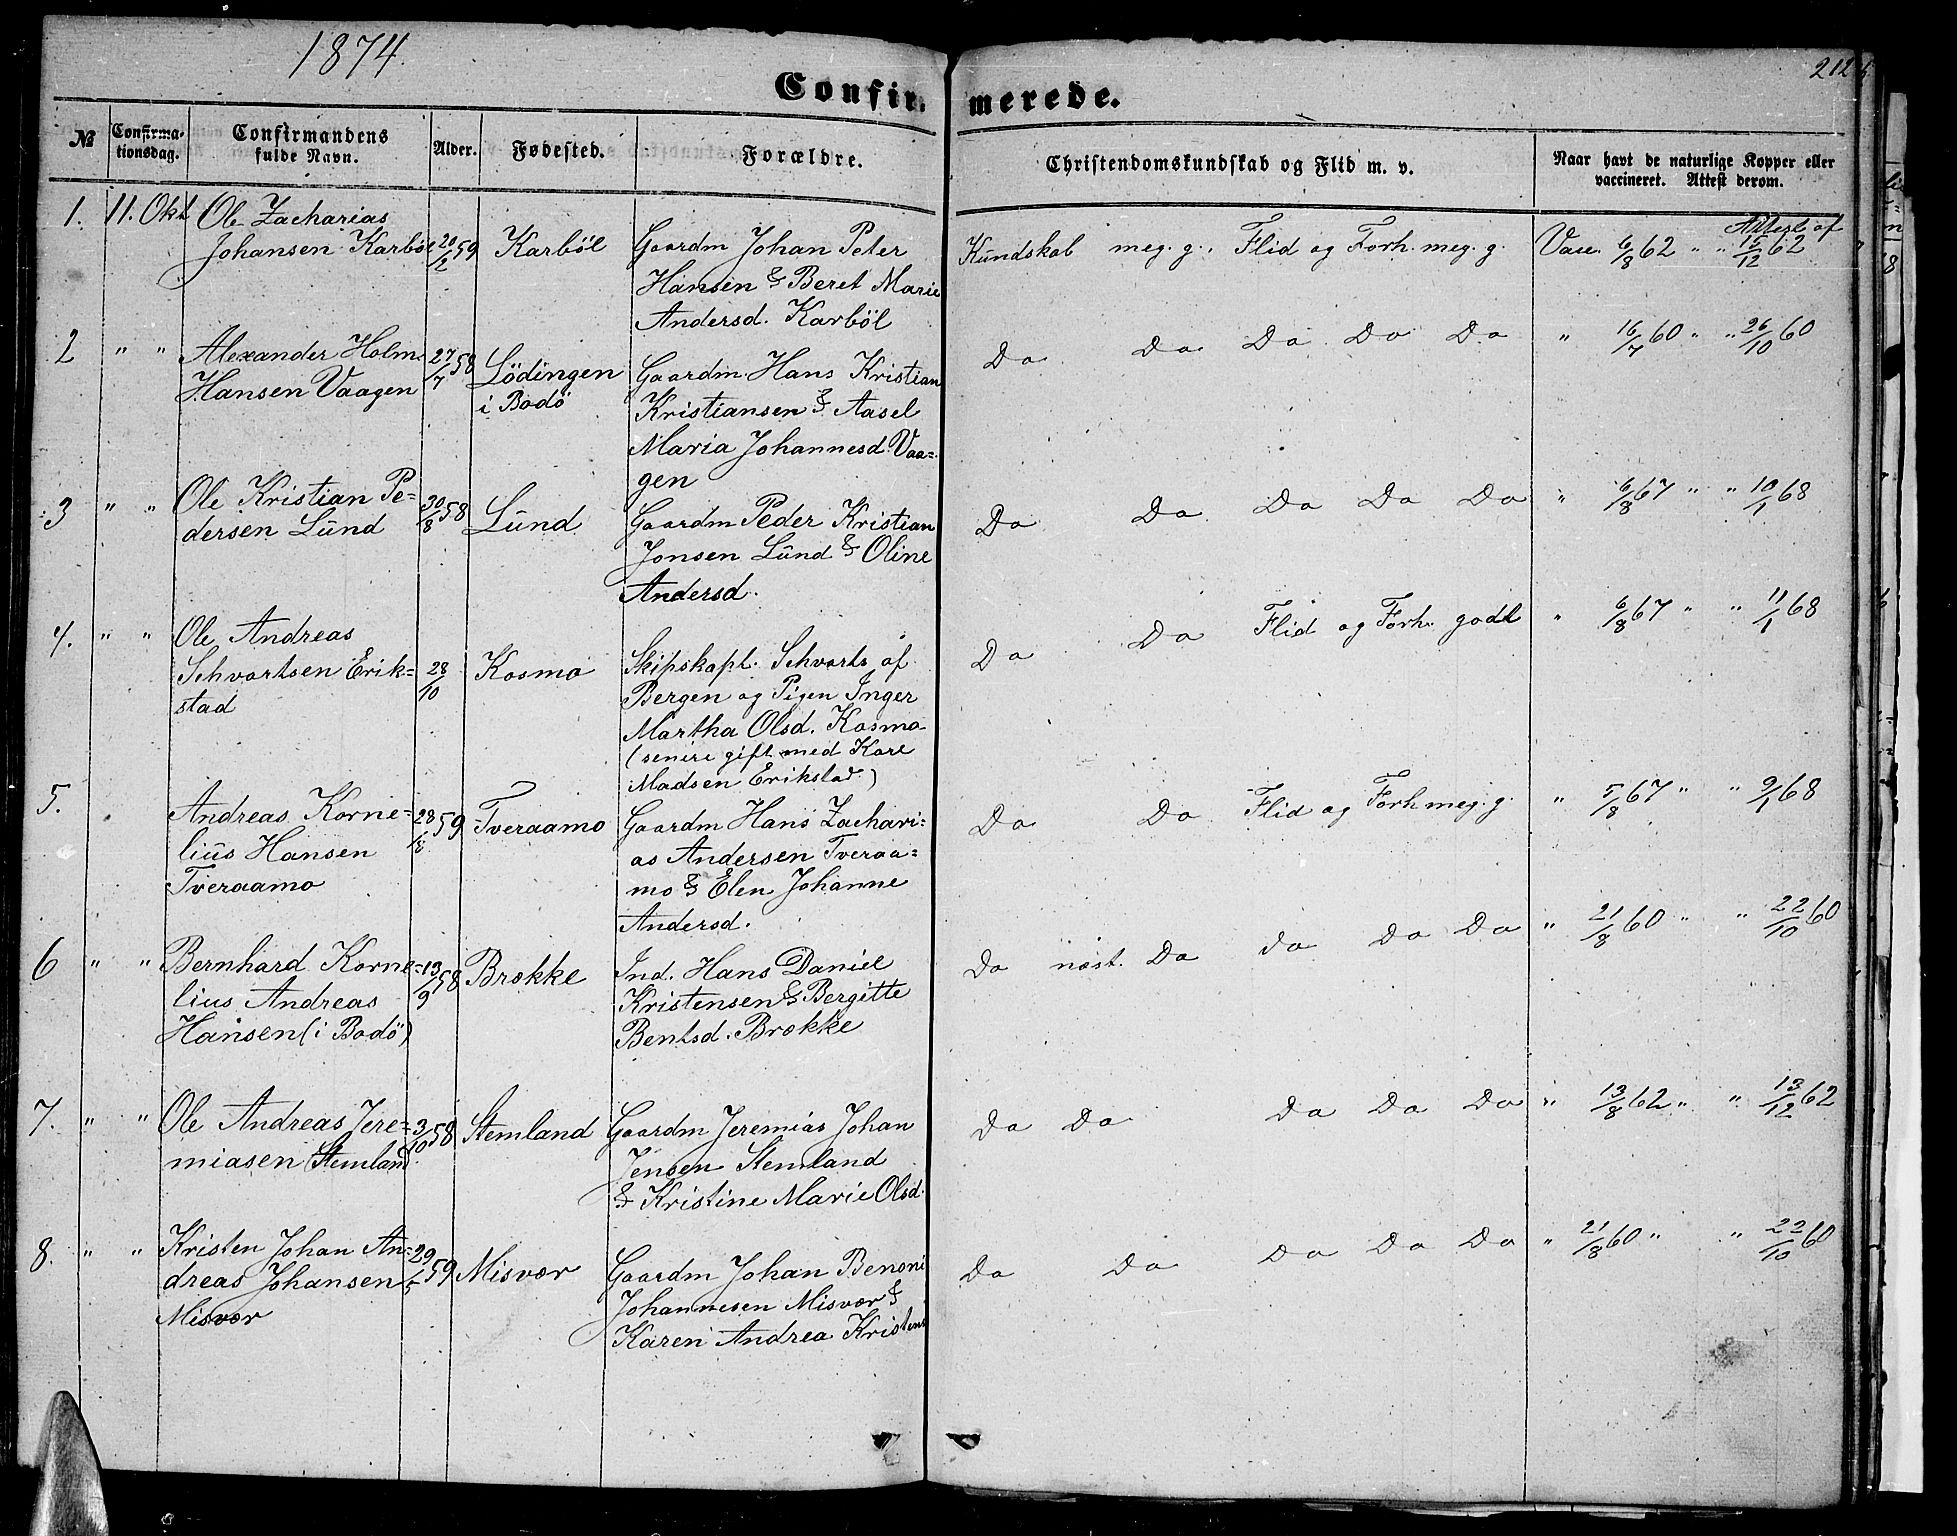 1874.
212
Confir= merede.
№ Confirma-tionsdag. Confirmandens fulde Navn. Alder. Fødested. Forældre. Christendomskundskab og Flid m. v. Naar havt de naturlige Kopper eller vaccineret. Attest derom.
1. 11. Okt Ole Zacharias
Johansen Karböl 20/2 59 Karböl Gaardm Johan Peter Kundskab meg. g., Flid og Forh. meg. g. Vacc. 6/8 62 " Attest af 15/12 62
Hansen & Beret Marie
Andersd. Karböl
2 " " Alexander Holm 27/7 58 Lödingen Gaardm. Hans Kristian Do Do Do Do Do " 16/7 60 " " 26/10 60
Hansen Vaagen i Bodö Kristiansen & Aasel
Maria Johannesd. Vaa=
gen
3 " " Ole Kristian Pe= 30/8 58 Lund Gaardm Peder Kristian Do Do Do Do Do " 6/8 67 " " 10/1 68
dersen Lund Jonsen Lund & Oline
Andersd.
4. " " Ole Andreas
Schvartsen Erik= 28/10 Kosmo Skipskapt. Schvarts af Do Do Flid og Forh. godt " 6/8 67 " " 11/1 68
stad Bergen og Pigen Inger
Martha Olsd. Kosmo
(senere gift med Kare
Madsen Erikstad)
5. Andreas Korne= 28/8 59 Tveraamo Gaardm Hans Zachari= Do Do Flid og Forh meg. g. " 5/8 67 " " 9/1 68
lius Hansen as Andersen Tveraa=
Tveraamo mo & Elen Johanne
Andersd.
6 " " Bernhard Korne= 13/9 58 Brække Ind. Hans Daniel Do næst. Do do Do Do " 21/8 60 " " 22/10 60
lius Andreas Kristensen & Bergitte
Hansen (i Bodö) Bentsd. Brække
7. " " Ole Andreas Jere= 3/10 58 Stemland Gaardm Jeremias Johan Do Do Do Do Do " 13/8 62 " " 13/12 62
miasen Stemland Jensen Stemland
& Kristine Marie Olsd.
8. " " Kristen Johan An= 29/5 59 Misvær Gaardm Johan Benoni Do Do Do Do Do " 21/8 60 " " 22/10 60
dreas Johansen Johannesen Misvær &
Misvær Karen Andrea Kristens